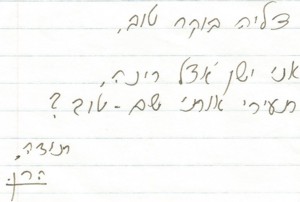 דליה בוקר טוב,
אני ישן אצל רינה,
תעירי אותי שם - טוב?
תודה,
הרן.